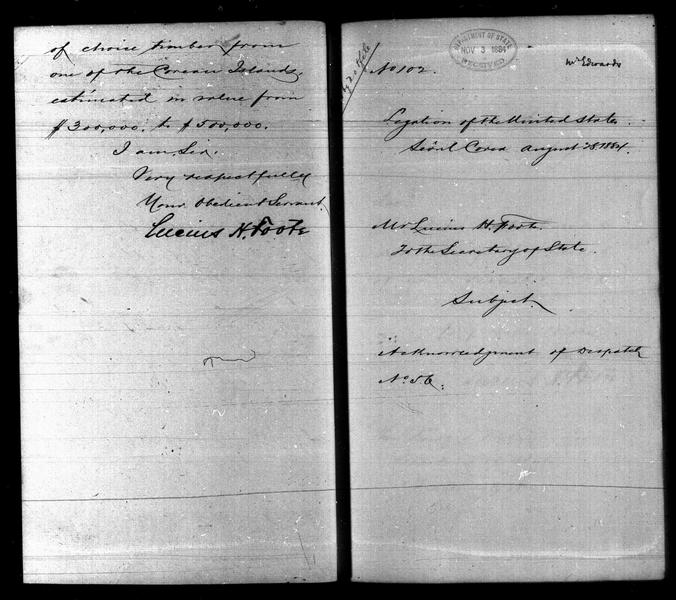 of choice timber from
one of the Corean Islands,
estimated in value from
$300,000. to $500,000.
I am, Sir.
Very respectfully
Your obedient Servant.
Lucius H. Foote
DEPARTMENT OF STATE
NOV 3 1884
RECEIVED
Mr Edwards
No 102.
Legation of the United States.
Seoul Corea August 1884.
Mr Lucius H. Foote.
To the Secretary of State.
Subject.
Acknowledgment of Despatch
No. 56.